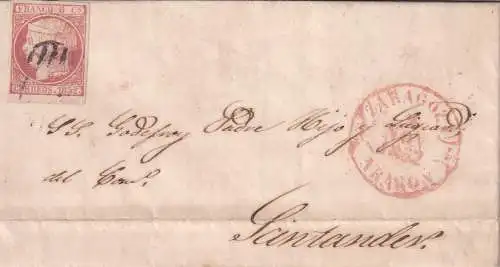 FRANCO 6 Cs.
CORREOS. 1852.
ZARAGOZA
ARAGON
S.S. Godefroy Padre Hijo y
del Com.o
Santander.